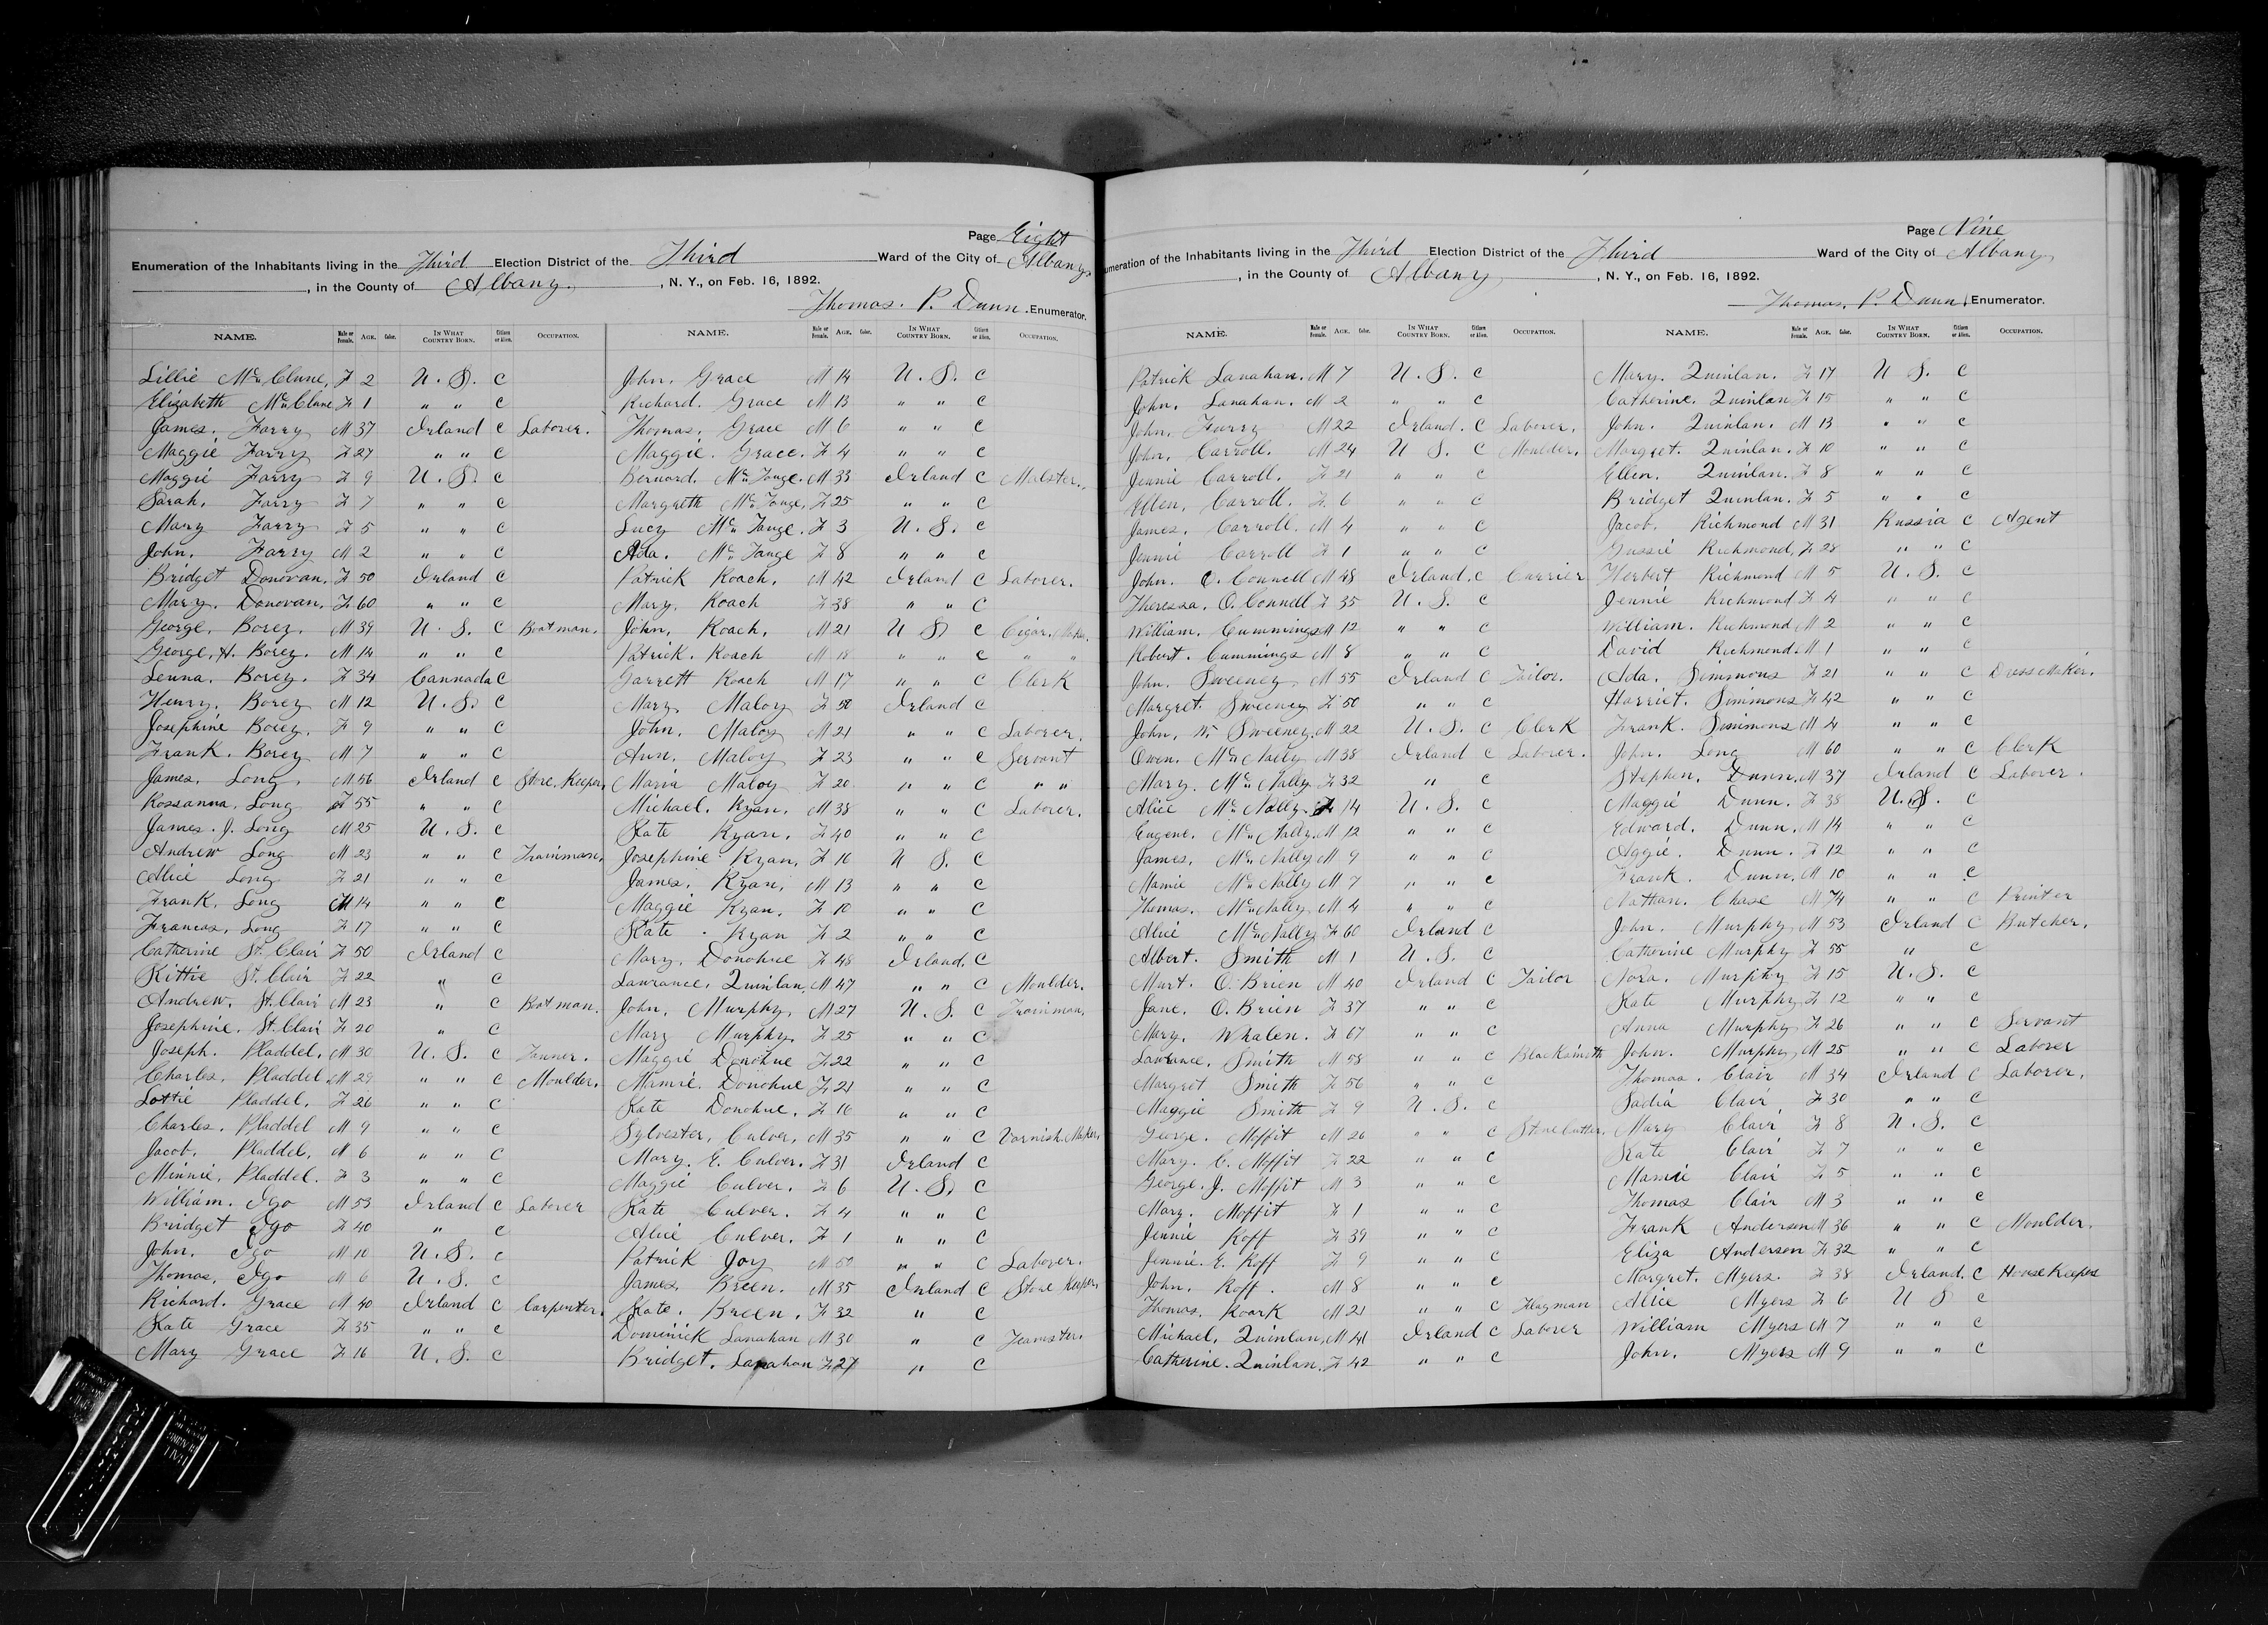 Page Eight
Enumeration of the Inhabitants living in the Third Election District of the Third Ward of the City of Albany
, in the County of Albany. , N. Y., on Feb. 16, 1892.
Thomas. P. Dunn. Enumerator.
NAME. Male or Female. AGE. Color. IN WHAT COUNTRY BORN. Citizen or Alien. OCCUPATION.
Lillie Mc Clune, F 2 U. S. C
Elizabeth Mc Clune F 1 " " C
James. Farry M 37 Irland C Laborer.
Maggie Farry F 27 " " C
Maggie Farry F 9 U. S. C
Sarah. Farry F 7 " " C
Mary Farry F 5 " " C
John. Farry M 2 " " C
Bridget Donovan. F 50 Irland C
Mary. Donovan. F 60 " " C
George. Borey. M 39 U. S. C Boatman.
George. H. Borey. M 14 " " C
Lenna. Borey. F 34 Cannada C
Henry. Borey M 12 U. S. C
Josephine Borey. F 9 " " C
Frank. Borey M 7 " " C
James. Long. M 56 Irland C Store. Keeper.
Rossanna. Long F 55 " " C
James. J. Long M 25 U. S. C
Andrew Long M 23 " " C Trainman.
Alice Long F 21 " " C
Frank. Long M 14 " " C
Frances. Long F 17 " " C
Catherine St. Clair F 50 Irland C
Kittie St. Clair F 22 " C
Andrew. St. Clair M 23 " C Boatman.
Josephine. St. Clair F 20 " C
Joseph. Pladdel. M 30 U. S. C Tanner.
Charles. Pladdel M 29 " " C Moulder.
Lottie Pladdel. F 26 " " C
Charles. Pladdel M 9 " " C
Jacob. Pladdel. M 6 " " C
Minnie. Pladdel. F 3 " " C
William. Igo M 53 Irland C Laborer
Bridget Igo F 40 " C
John. Igo M 10 U. S. C
Thomas. Igo M 6 U. S. C
Richard. Grace M. 40 Irland C Carpenter.
Kate Grace F 35 " " C
Mary Grace F 16 U. S. C
NAME. Male or Female. AGE. Color. IN WHAT COUNTRY BORN. Citizen or Alien. OCCUPATION.
John. Grace M 14 U. S. C
Richard. Grace M 13 " " C
Thomas. Grace M 6 " " C
Maggie. Grace. F 4 " " C
Bernard. Mc Tauge. M 33 Irland C Malster.
Margreth Mc Tauge. F 25 " " C
Lucy Mc Tauge. F 3 U. S. C
Ada. Mc Tauge F 8 " " C
Patrick Roach. M 42 Irland C Laborer.
Mary. Roach F 38 " " C
John. Roach. M 21 U S. C Cigar. Maker.
Patrick. Roach M 18 " " C " "
Garrett Roach M 17 " " C Clerk
Mary Maloy F 50 Irland C
John. Maloy M 21 " " C Laborer.
Ann. Maloy F 23 " " C Servant
Maria Maloy F 20 " " C " "
Michael. Ryan. M 38 " " C Laborer.
Kate Ryan. F 40 " " C
Josephine Ryan. F 16 U S. C
James. Ryan. M 13 " " C
Maggie Ryan. F 10 " " C
Kate Ryan F 2 " " C
Mary. Donohue F 48 Irland. C
Lawrance. Quinlan. M 47 " " C Moulder.
John. Murphy. M 27 U. S. C Trainman.
Mary Murphy. F 25 " " C
Maggie Donohue F 22 " " C
Mamie. Donohue F 21 " " C
Kate Donohue. F 16 " " C
Sylvester. Culver. M 35 " " C Varnish. Maker.
Mary. E. Culver. F 31 Irland C
Maggie Culver. F 6 U. S. C
Kate Culver. F 4 " " C
Alice Culver. F 1 " " C
Patrick Joy M 50 " " C Laborer.
James. Breen. M 35 Irland C Store Keeper.
Kate. Breen. F 32 " C
Dominick Lanahan M 30 " C Teamster.
Bridget. Lanahan F 27 " C
Page Nine
umeration of the Inhabitants living in the Third Election District of the Third Ward of the City of Albany
, in the County of Albany , N. Y., on Feb. 16, 1892.
Thomas. P. Dunn. Enumerator.
NAME. Male or Female. AGE. Color. IN WHAT COUNTRY BORN. Citizen or Alien. OCCUPATION.
Patrick Lanahan. M 7 U. S. C
John. Lanahan. M 2 " " C
John. Farry M 22 Irland. C Laborer.
John. Carroll. M 24 U S. C Moulder.
Jennie Carroll. F 21 " " C
Ellen. Carroll. F 6 " " C
James. Carroll. M 4 " " C
Jennie Carroll F 1 " " C
John. O. Connell M 48 Irland. C Carrier
Theressa. O. Connell F 35 U. S. C
William. Cummings M 12 " " C
Robert. Cummings M 8 " " C
John. Sweeney. M 55 Irland C Tailor.
Margret. Sweeney F 50 " " C
John. W. Sweeney. M 22 U. S. C Clerk
Owen. Mc Nally M 38 Irland C Laborer.
Mary. Mc Nally F 32 " C
Alice Mc Nally. F 14 U. S. C
Eugene. Mc Nally. M 12 " " C
James. Mc Nally M 9 " " C
Mamie Mc Nally M 7 " " C
Thomas. Mc Nally M 4 " " C
Alice Mc Nally F 60 Irland C
Albert. Smith M 1 U. S. C
Mart. O. Brien M 40 Irland C Tailor
Jane. O. Brien F 37 " " C
Mary. Whalen. F 67 " " C
Lawrance. Smith M 58 " " C Blacksmith
Margret Smith F 56 " " C
Maggie Smith F 9 U. S. C
George. Moffit M 26 " " C Stone Cutter.
Mary. C. Moffit F 22 " " C
George. J. Moffit M 3 " " C
Mary. Moffit F 1 " " C
Jennie Roff F 39 " " C
Jennie. E. Roff F 9 " " C
John. Roff. M 8 " " C
Thomas. Roark M 21 " " C Flagman
Michael. Quinlan. M 41 Irland C Laborer
Catherine. Quinlan. F 42 " " C
NAME. Male or Female. AGE. Color. IN WHAT COUNTRY BORN. Citizen or Alien. OCCUPATION.
Mary. Quinlan. F 17 U S. C
Catherine. Quinlan F 15 " " C
John. Quinlan. M 13 " " C
Margret. Quinlan. F 10 " " C
Ellen. Quinlan. F 8 " " C
Bridget Quinlan. F 5 " " C
Jacob. Richmond M 31 Russia C Agent
Gussie Richmond. F 28 " " C
Herbert Richmond M 5 U. S. C
Jennie Richmond F 4 " " C
William. Richmond M 2 " " C
David Richmond. M 1 " " C
Ada. Simmons F 21 " " C Dress Maker.
Harriet. Simmons F 42 " " C
Frank. Simmons M 4 " " C
John. Long M 60 " " C Clerk
Stephen. Dunn. M 37 Irland C Laborer.
Maggie Dunn. F 38 U. S. C
Edward. Dunn. M 14 " " C
Aggie. Dunn. F 12 " " C
Frank. Dunn. M 10 " " C
Nathan. Chase M 74 " " C Printer
John. Murphy M 53 Irland C Butcher.
Catherine Murphy F 55 " C
Nora. Murphy F 15 U. S. C
Kate Murphy F 12 " " C
Anna Murphy F 26 " " C Servant
John. Murphy M 25 " " C Laborer
Thomas. Clair M 34 Irland C Laborer.
Sadia Clair F 30 " " C
Mary Clair F 8 U. S. C
Kate Clair F 7 " " C
Mamie Clair F 5 " " C
Thomas Clair M 3 " " C
Frank Anderson M 36 " " C Moulder.
Eliza Anderson F 32 " " C
Margret. Myers. F 38 Irland. C House Keeper
Alice Myers F 6 U S C
William Myers M 7 " " C
John. Myers M 9 " " C